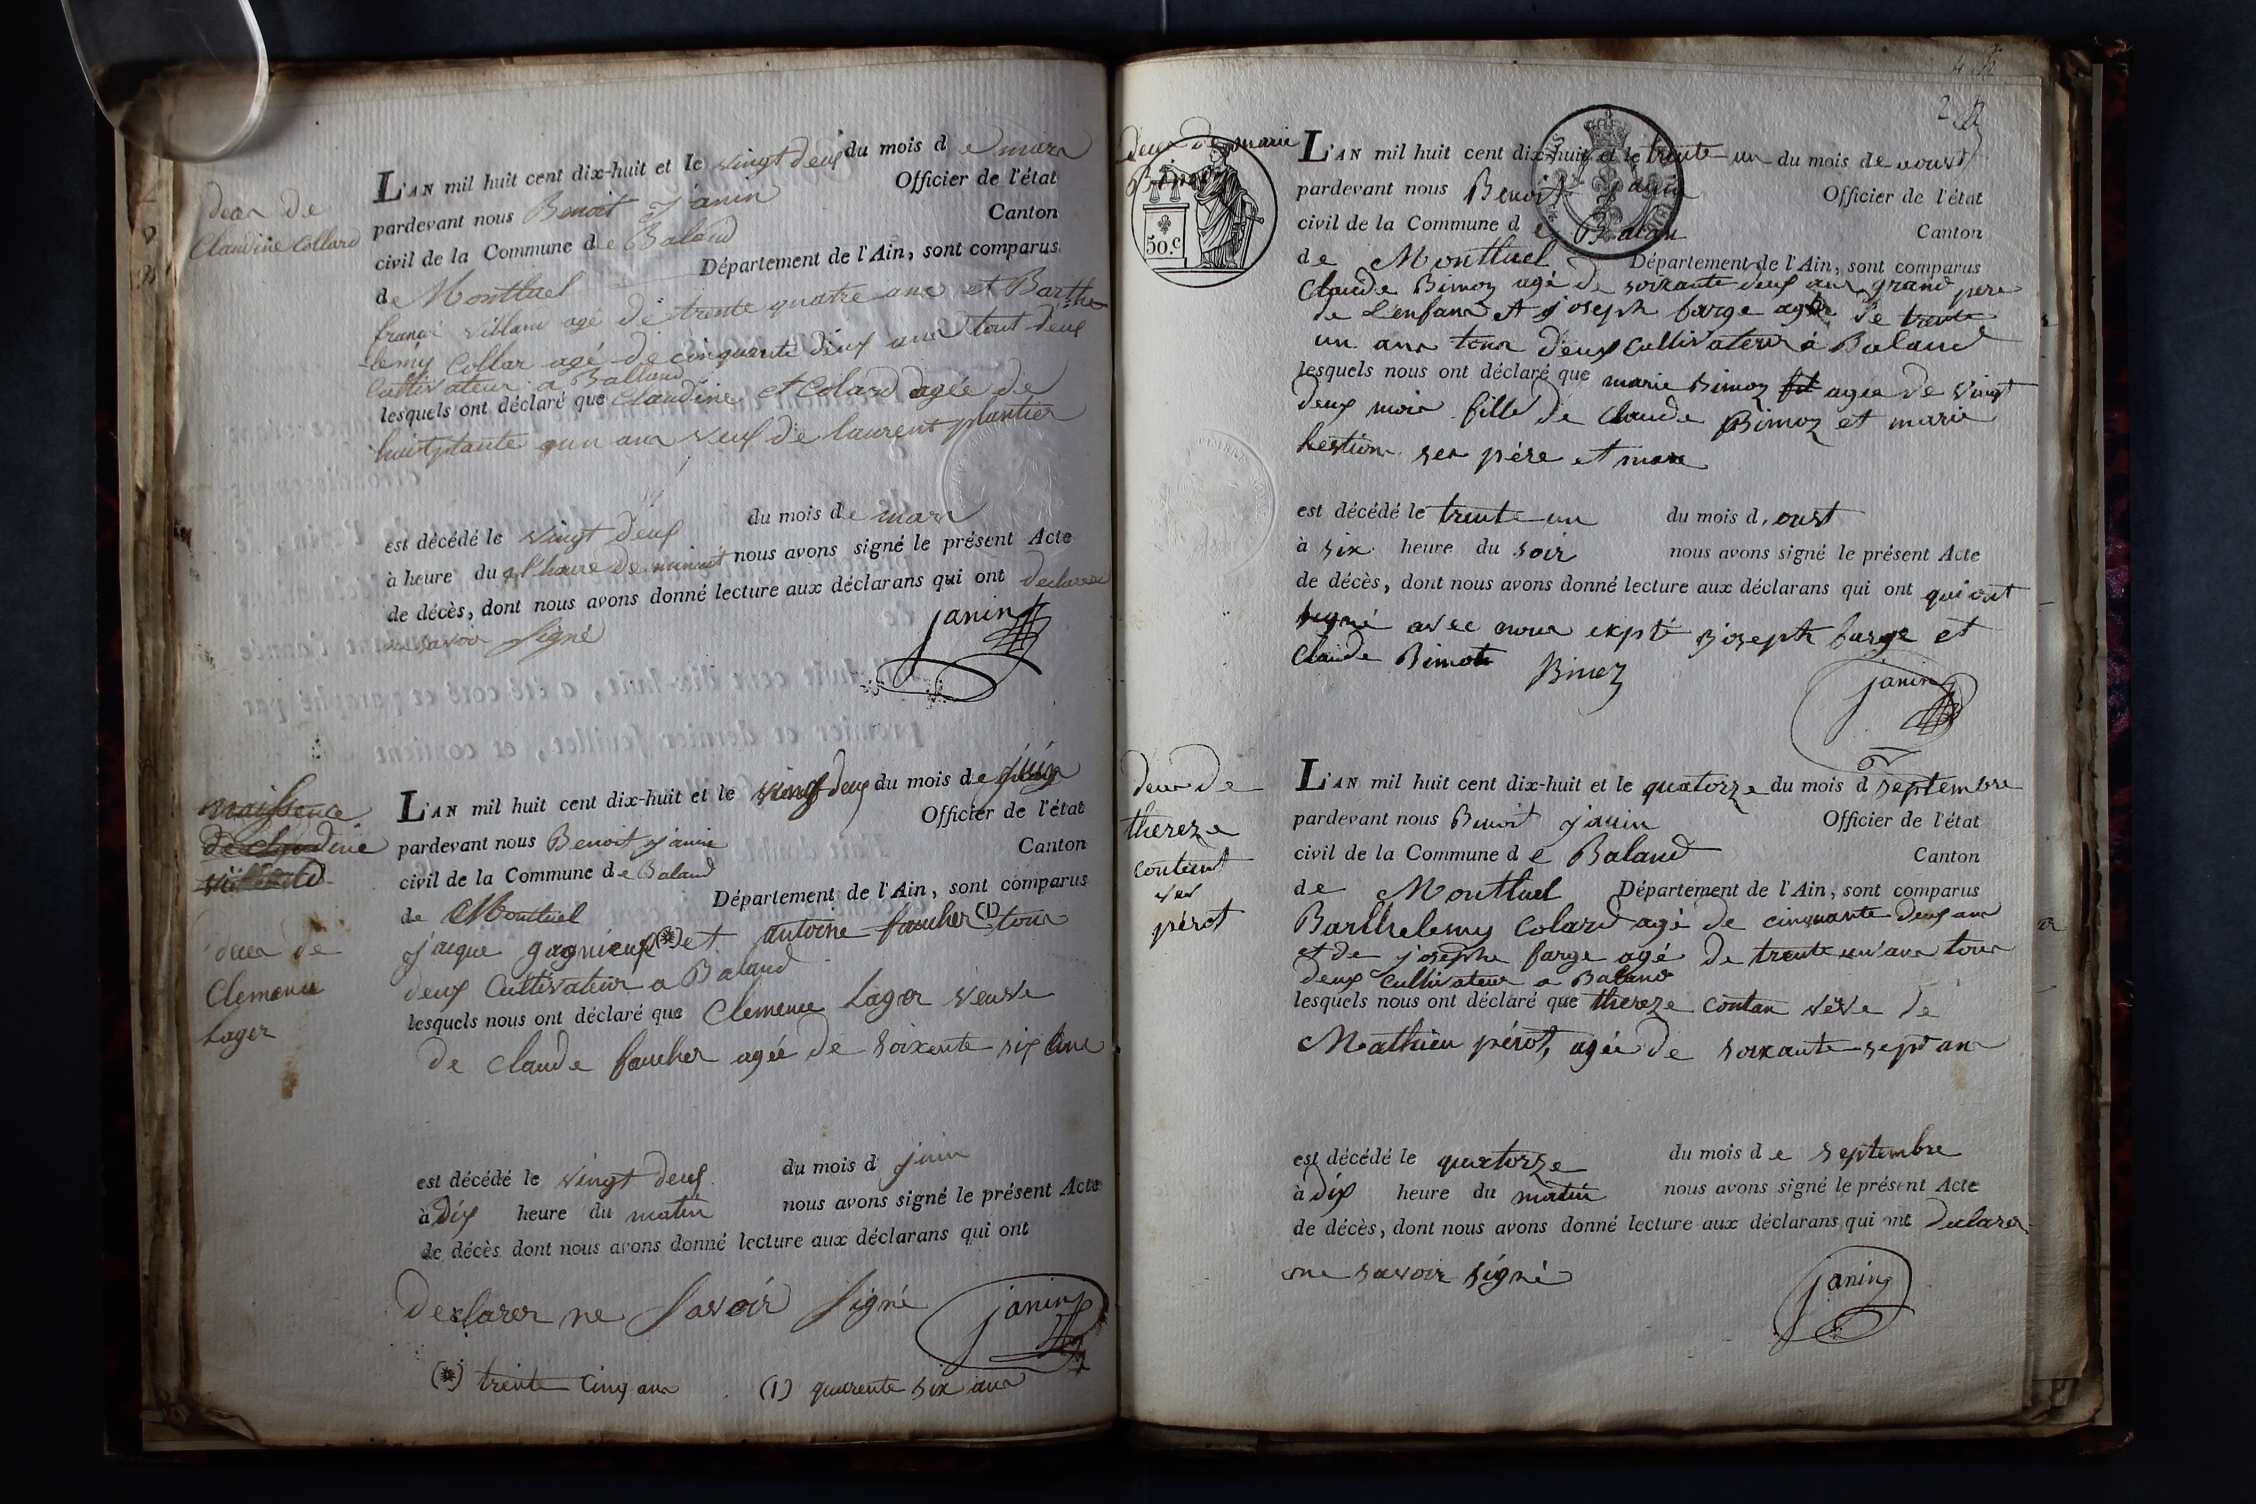 Claudine Collard
L'AN mil huit cent dix-huit et le vingt deux du mois de mars
pardevant nous Benoit Janin Officier de l'état
civil de la Commune de Baland Canton
de Montluel Département de l'Ain, sont comparus
agé de trente quatre ans et Barthe
lemy Collar agé de cinquante deux ans tout deux
cultivateur a Balland
lesquels ont déclaré que Claudine et Colard agée de
un ans veuf de laurent plantier
est décédé le vingt deux du mois de mars
à heure du a l'heure de minuit nous avons signé le présent Acte
de décès, dont nous avons donné lecture aux déclarans qui ont
ne savoir signé
janin
naissence
de claudine
deces de
Clemence
Lager
L'AN mil huit cent dix-huit et le vingt deux du mois de juin
pardevant nous Benoit Janin Officier de l'état
civil de la Commune de Baland Canton
de Montluel Département de l'Ain, sont comparus
jacque gagnieux (*) et antoine faucher (1) tous
deux Cultivateur a Baland
lesquels nous ont déclaré que Clemence Lager veuve
de claude faucher agée de soixente six ans
est décédé le vingt deux du mois d juin
à dix heure du matin nous avons signé le présent Acte
de décès dont nous avons donné lecture aux déclarans qui ont
declarer ne savoir signé
janin
(*) trente cinq ans (1) quarente six ans
2
50.c
L'AN mil huit cent dix-huit et le trente un du mois de aoust
pardevant nous Benoit Janin Officier de l'état
civil de la Commune de Balan Canton
de Montluel Département de l'Ain, sont comparus
Claude Bimoz agé de soixante deux ans grand pere
de L'enfans et joseph farge agé de trente
un ans tous deux Cultivateur à Baland
lesquels nous ont déclaré que marie Bimoz agée de vingt
deux mois fille de Claude Bimoz et marie
ses père et mere
est décédé le trente un du mois d, oust
à six heure du soir nous avons signé le présent Acte
de décès, dont nous avons donné lecture aux déclarans qui ont qui ont
signé avec nous expté joseph farge et
Claude Bimot
janin
deces de
thereze
contant
vev
pérot
L'AN mil huit cent dix-huit et le quatorze du mois d septembre
pardevant nous Benoit Janin Officier de l'état
civil de la Commune d e Baland Canton
de Montluel Département de l'Ain, sont comparus
Barthelemy Colard agé de cinquante deux ans
et de josephe farge agé de trente un ans tous
deux cultivateur a Baland
lesquels nous ont déclaré que thereze contan veve de
Mathieu pérot, agée de soixante sept ans
est décédé le quatorze du mois d e septembre
à dix heure du matin nous avons signé le présent Acte
de décès, dont nous avons donné lecture aux déclarans qui ont declarer
ne savoir signé
janin